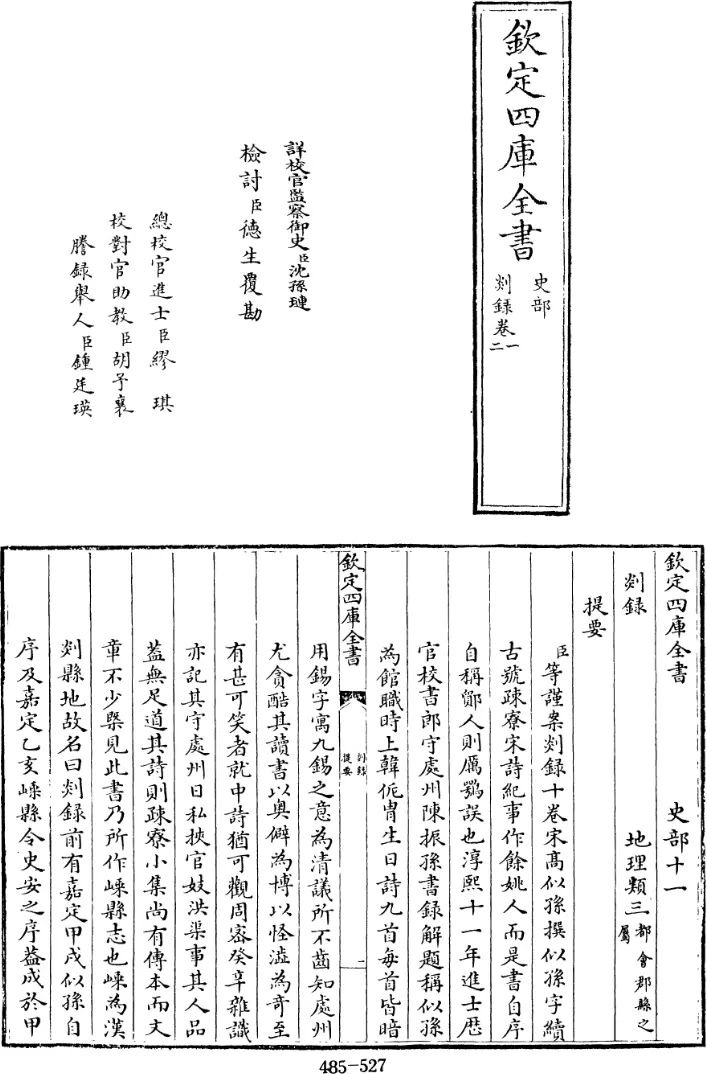 欽定四庫全書
史部
剡録卷一
二
詳校官監察御史臣沈孫璉
檢討臣德生覆勘
總校官進士臣繆琪
校對官助教臣胡予襄
謄録舉人臣鍾廷瑛
欽定四庫全書 史部十一
剡録 地理類三都會郡縣之
屬
提要
臣等謹案剡録十卷宋髙似孫撰似孫字續
古號疎寮宋詩紀事作餘姚人而是書自序
自稱鄮人則厲鶚誤也淳熙十一年進士歴
官校書郎守處州陳振孫書録解題稱似孫
為館職時上韓侂胄生日詩九首每首皆暗
欽定四庫全書
剡録
提要
一
用錫字寓九錫之意為清議所不齒知處州
尤貪酷其讀書以奥僻為博以怪澁為竒至
有甚可笑者就中詩猶可觀周宻癸辛雜識
亦記其守處州日私挾官妓洪渠事其人品
蓋無足道其詩則疎寮小集尚有傳本而文
章不少槩見此書乃所作嵊縣志也嵊為漢
剡縣地故名曰剡録前有嘉定甲戌似孫自
序及嘉定乙亥嵊縣令史安之序蓋成於甲
485-527